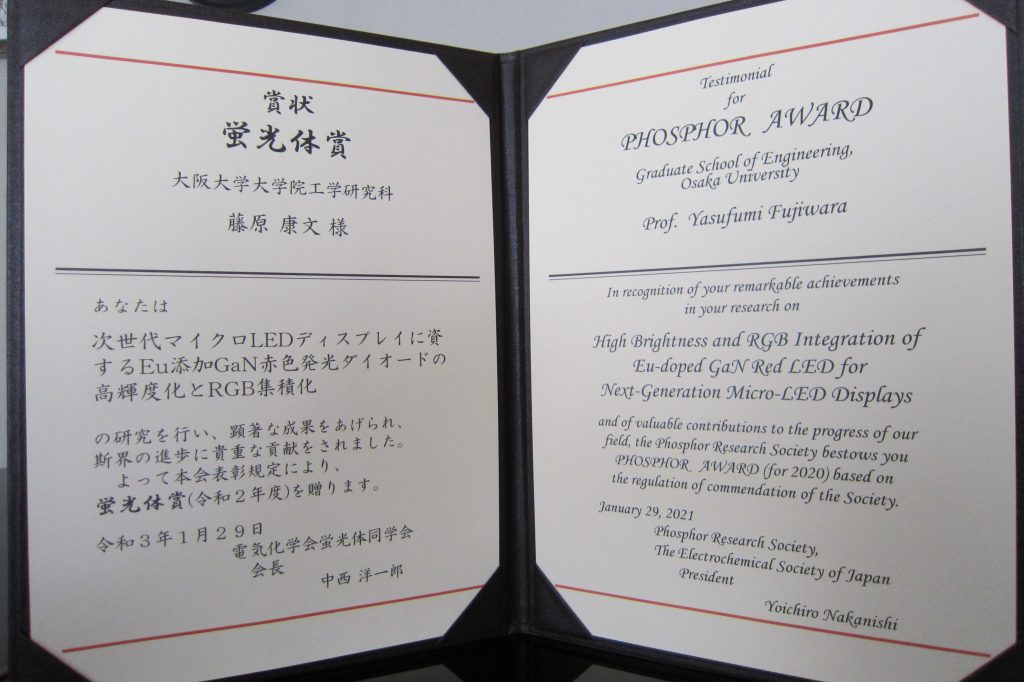 賞状
蛍光体賞
大阪大学大学院工学研究科
藤原 康文 様
あなたは
次世代マイクロLEDディスプレイに資
するEu添加GaN赤色発光ダイオードの
高輝度化とRGB集積化
の研究を行い、顕著な成果をあげられ、
斯界の進歩に貴重な貢献をされました。
よって本会表彰規定により、
蛍光体賞(令和2年度)を贈ります。
令和3年1月29日
電気化学会蛍光体同学会
会長
中西 洋一郎
Testimonial
for
PHOSPHOR AWARD
Graduate School of Engineering,
Osaka University
Prof. Yasufumi Fujiwara
In recognition of your remarkable achievements
in your research on
High Brightness and RGB Integration of
Eu-doped GaN Red LED for
Next-Generation Micro-LED Displays
and of valuable contributions to the progress of our
field, the Phosphor Research Society bestows you
PHOSPHOR AWARD (for 2020) based on
the regulation of commendation of the Society.
January 29, 2021
Phosphor Research Society,
The Electrochemical Society of Japan
President
Yoichiro Nakanishi